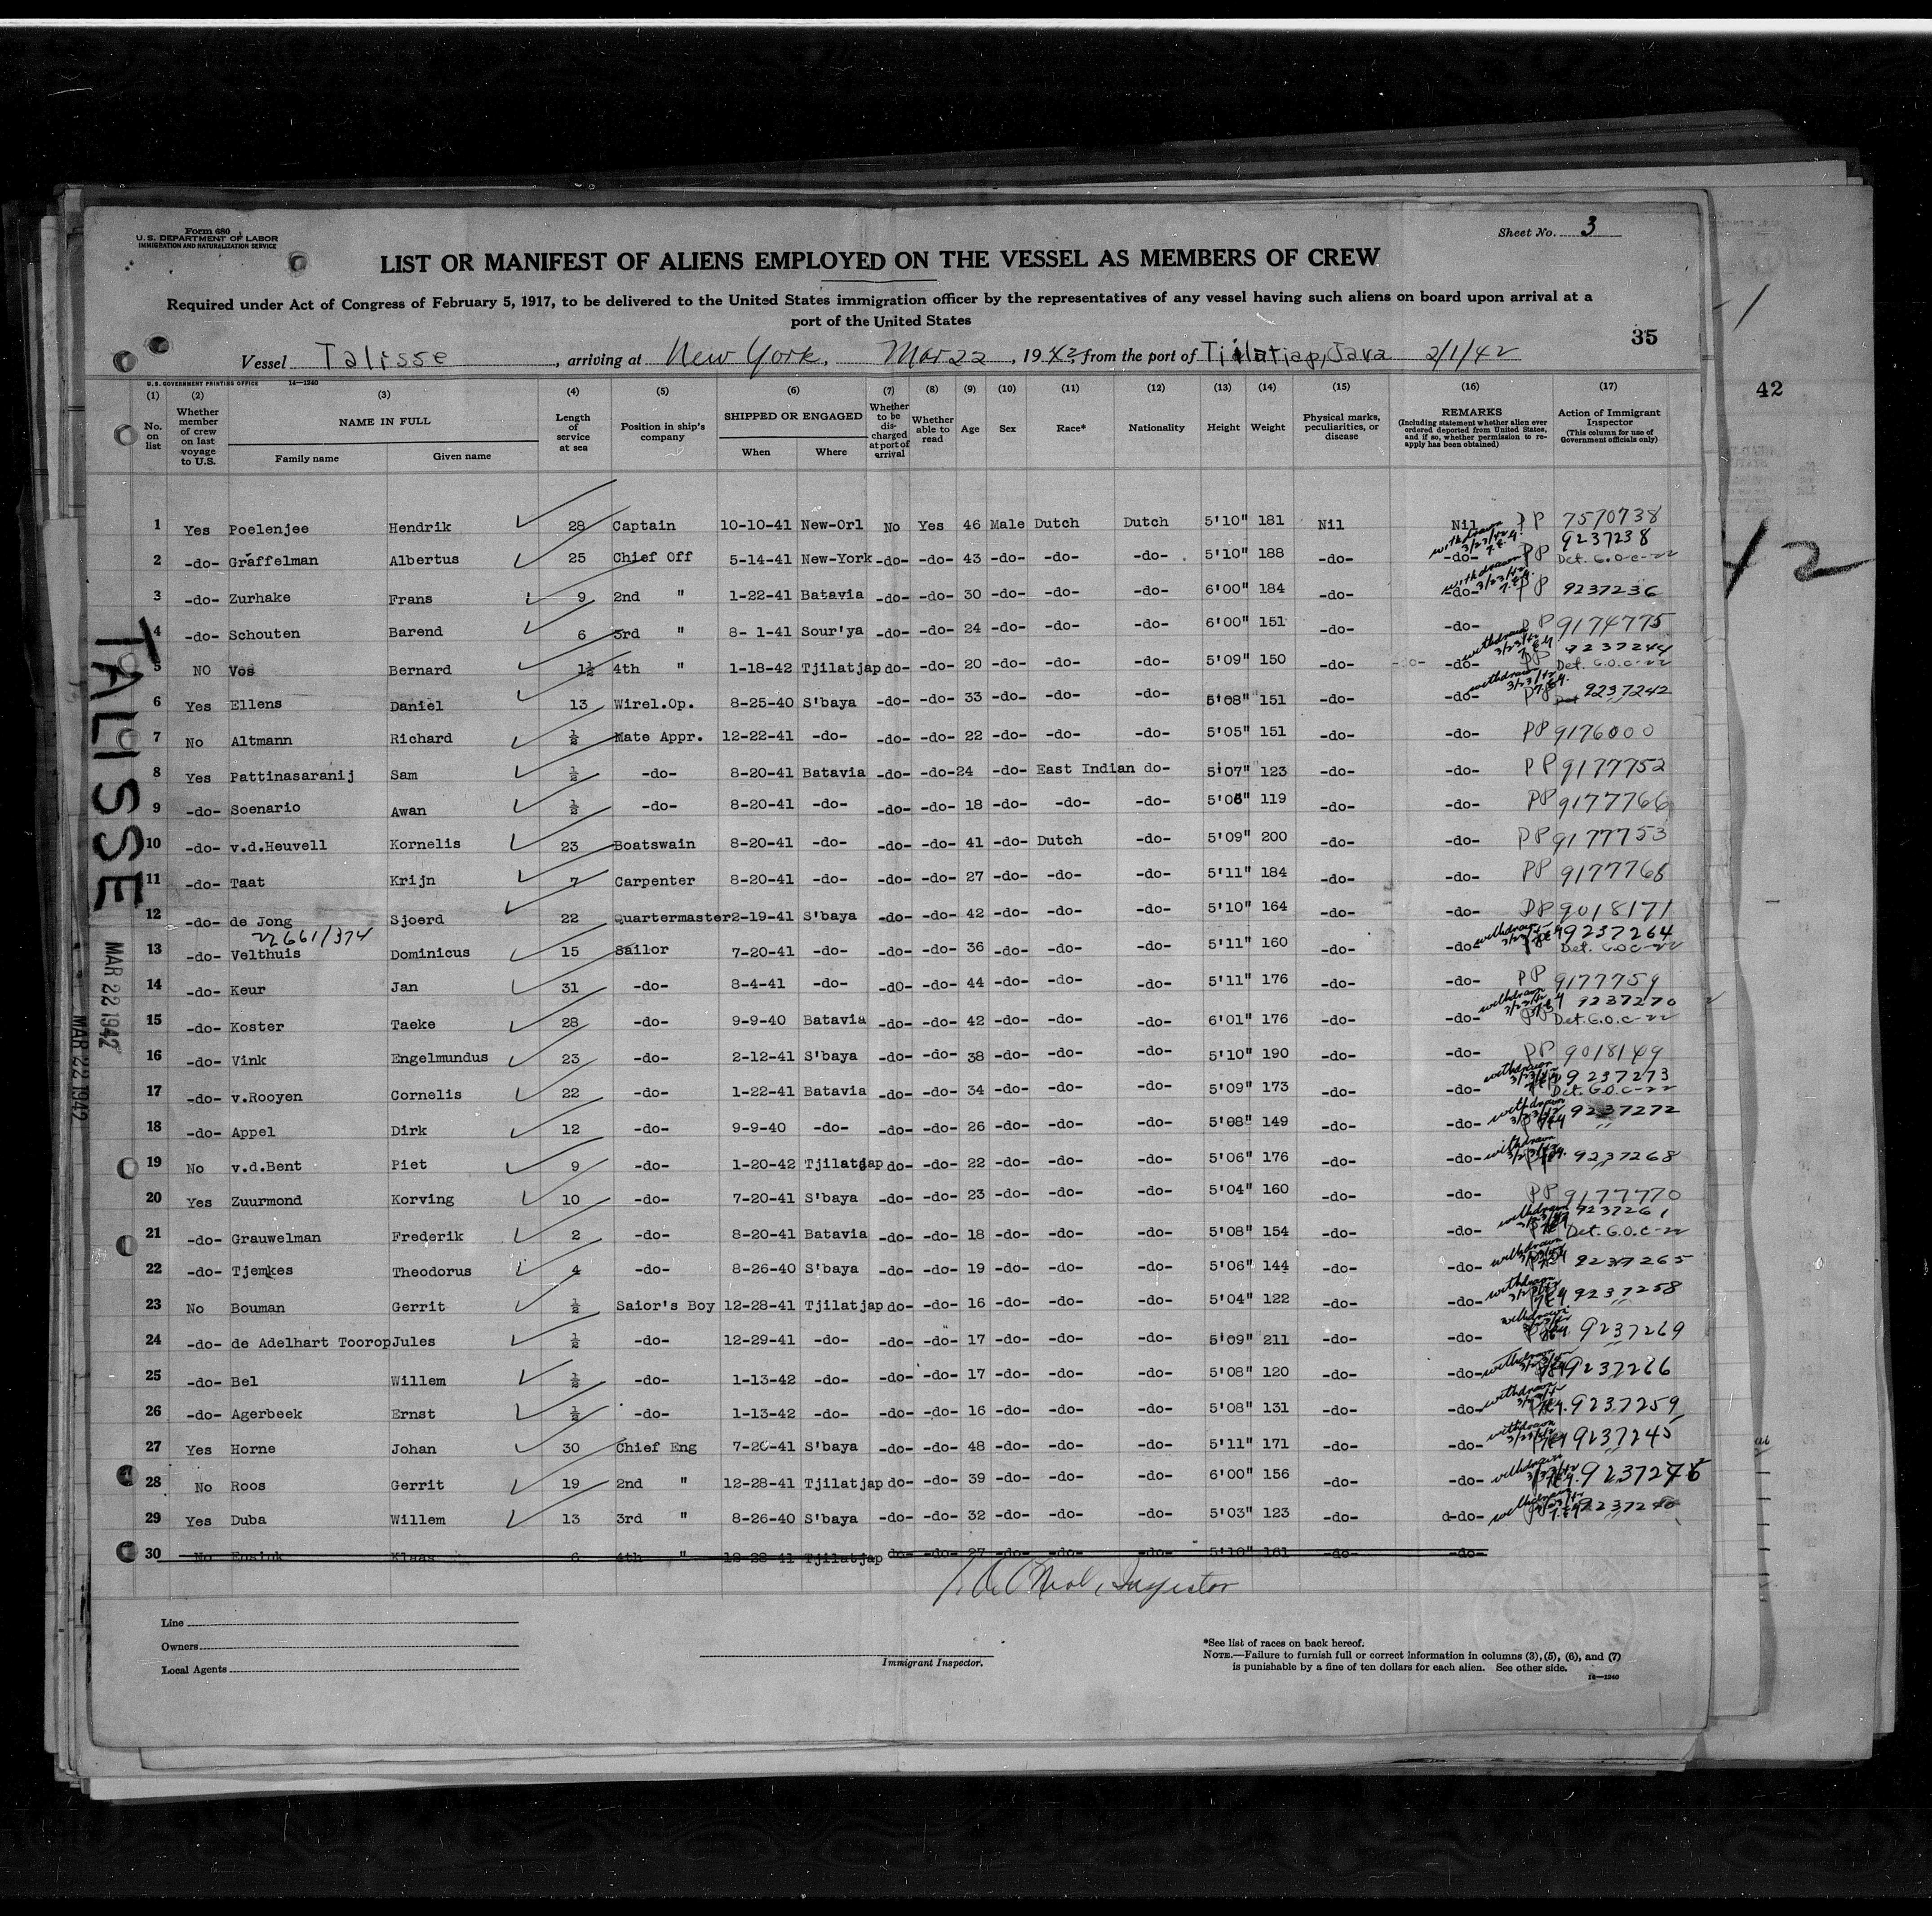 Form 680
U. S. DEPARTMENT OF LABOR
IMMIGRATION AND NATURALIZATION SERVICE
Sheet No. 3
LIST OR MANIFEST OF ALIENS EMPLOYED ON THE VESSEL AS MEMBERS OF CREW
Required under Act of Congress of February 5, 1917, to be delivered to the United States immigration officer by the representatives of any vessel having such aliens on board upon arrival at a
port of the United States
35
Vessel Talisse, arriving at New York, Mar 22, 1942, from the port of Tjilatjap, Java 2/1/42
U. S. GOVERNMENT PRINTING OFFICE 14—1240
42
(1) No. on list
(2) Whether member of crew on last voyage to U.S.
(3) NAME IN FULL Family name Given name
(4) Length of service at sea
(5) Position in ship's company
(6) SHIPPED OR ENGAGED When Where
(7) Whether to be discharged at port of arrival
(8) Whether able to read
(9) Age
(10) Sex
(11) Race*
(12) Nationality
(13) Height
(14) Weight
(15) Physical marks, peculiarities, or disease
(16) REMARKS (Including statement whether alien ever ordered deported from United States, and if so, whether permission to reapply has been obtained)
(17) Action of Immigrant Inspector (This column for use of Government officials only)
1 Yes Poelenjee Hendrik 28 Captain 10-10-41 New-Orl No Yes 46 Male Dutch Dutch 5'10" 181 Nil Nil PP 7570738
2 -do- Graffelman Albertus 25 Chief Off 5-14-41 New-York -do- -do- 43 -do- -do- -do- 5'10" 188 -do- -do- withdrawn PP 9237238 Det. G.O.C-22
3 -do- Zurhake Frans 9 2nd " 1-22-41 Batavia -do- -do- 30 -do- -do- -do- 6'00" 184 -do- -do- withdrawn 3/23/42 PP 9237236
4 -do- Schouten Barend 6 3rd " 8- 1-41 Sour'ya -do- -do- 24 -do- -do- -do- 6'00" 151 -do- -do- PP 9174775
5 NO Vos Bernard 1½ 4th " 1-18-42 Tjilatjap do- -do- 20 -do- -do- -do- 5'09" 150 -do- -do- -do- withdrawn 3/23/42 PP 9237244 Det. G.O.C-22
6 Yes Ellens Daniel 13 Wirel.Op. 8-25-40 S'baya -do- -do- 33 -do- -do- -do- 5'08" 151 -do- -do- withdrawn 3/23/42 PP 9237242
7 No Altmann Richard ½ Mate Appr. 12-22-41 -do- -do- -do- 22 -do- -do- -do- 5'05" 151 -do- -do- PP 9176000
8 Yes Pattinasaranij Sam ½ -do- 8-20-41 Batavia -do- -do- 24 -do- East Indian do- 5'07" 123 -do- -do- PP 9177752
9 -do- Soenario Awan ½ -do- 8-20-41 -do- -do- -do- 18 -do- -do- -do- 5'06" 119 -do- -do- PP 9177766
10 -do- v.d.Heuvell Kornelis 23 Boatswain 8-20-41 -do- -do- -do- 41 -do- Dutch -do- 5'09" 200 -do- -do- PP 9177753
11 -do- Taat Krijn 7 Carpenter 8-20-41 -do- -do- -do- 27 -do- -do- -do- 5'11" 184 -do- -do- PP 9177768
12 -do- de Jong Sjoerd 22 Quartermaster 2-19-41 S'baya -do- -do- 42 -do- -do- -do- 5'10" 164 -do- -do- PP 9018171
22661/374
13 -do- Velthuis Dominicus 15 Sailor 7-20-41 -do- -do- -do- 36 -do- -do- -do- 5'11" 160 -do- -do- withdrawn 9237264 Det. G.O.C-22
14 -do- Keur Jan 31 -do- 8-4-41 -do- -dO- -do- 44 -do- -do- -do- 5'11" 176 -do- -do- PP 9177759
15 -do- Koster Taeke 28 -do- 9-9-40 Batavia -do- -do- 42 -do- -do- -do- 6'01" 176 -do- -do- withdrawn 9237270 Det. G.O.C-22
16 -do- Vink Engelmundus 23 -do- 2-12-41 S'baya -do- -do- 38 -do- -do- -do- 5'10" 190 -do- -do- PP 9018149
17 -do- v.Rooyen Cornelis 22 -do- 1-22-41 Batavia -do- -do- 34 -do- -do- -do- 5'09" 173 -do- -do- withdrawn 3/23/42 9237273 Det. G.O.C-22
18 -do- Appel Dirk 12 -do- 9-9-40 -do- -do- -do- 26 -do- -do- -do- 5'08" 149 -do- -do- withdrawn 9237272
19 No v.d.Bent Piet 9 -do- 1-20-42 Tjilatjap do- -do- 22 -do- -do- -do- 5'06" 176 -do- -do- withdrawn 9237268
20 Yes Zuurmond Korving 10 -do- 7-20-41 S'baya -do- -do- 23 -do- -do- -do- 5'04" 160 -do- -do- PP 9177770
21 -do- Grauwelman Frederik 2 -do- 8-20-41 Batavia -do- -do- 18 -do- -do- -do- 5'08" 154 -do- -do- withdrawn 9237261 Det. G.O.C-22
22 -do- Tjemkes Theodorus 4 -do- 8-26-40 S'baya -do- -do- 19 -do- -do- -do- 5'06" 144 -do- -do- withdrawn 9237265
23 No Bouman Gerrit ½ Saior's Boy 12-28-41 Tjilatjap do- -do- 16 -do- -do- -do- 5'04" 122 -do- -do- withdrawn 9237258
24 -do- de Adelhart Toorop Jules ½ -do- 12-29-41 -do- -do- -do- 17 -do- -do- -do- 5'09" 211 -do- -do- withdrawn 9237269
25 -do- Bel Willem ½ -do- 1-13-42 -do- -do- -do- 17 -do- -do- -do- 5'08" 120 -do- -do- withdrawn 9237266
26 -do- Agerbeek Ernst ½ -do- 1-13-42 -do- -do- -do- 16 -do- -do- -do- 5'08" 131 -do- -do- withdrawn 9237259
27 Yes Horne Johan 30 Chief Eng 7-20-41 S'baya -do- -do- 48 -do- -do- -do- 5'11" 171 -do- -do- withdrawn 3/23/42 9237245
28 No Roos Gerrit 19 2nd " 12-28-41 Tjilatjap do- -do- 39 -do- -do- -do- 6'00" 156 -do- -do- withdrawn
29 Yes Duba Willem 13 3rd " 8-26-40 S'baya -do- -do- 32 -do- -do- -do- 5'03" 123 -do- d-do- withdrawn
30 No Ensink Klaas 6 4th " 12-28-41 Tjilatjap do- -do- 27 -do- -do- -do- 5'10" 161 -do- -do-
Inspector
TALISSE
MAR 22 1942
MAR 22 1942
Line
Owners
Local Agents
Immigrant Inspector.
*See list of races on back hereof.
NOTE.—Failure to furnish full or correct information in columns (3), (5), (6), and (7)
is punishable by a fine of ten dollars for each alien. See other side.
14—1240